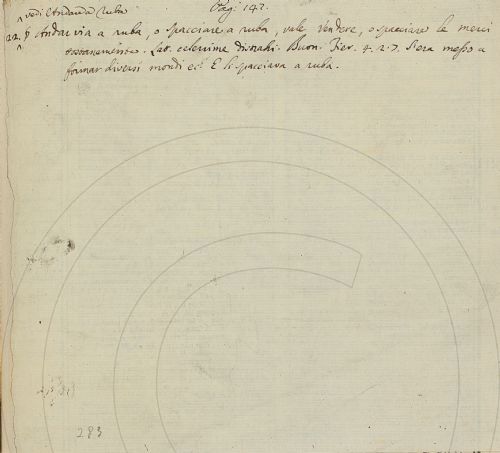 vedi Andando Ruba
Pag. 142.
22. § Andar via a ruba, o spacciare a ruba, vale Vendere, o spacciare le merci
. Lat. celerrime distrahi. Buon. Fier. 4. 2. 7. S'era messo a
formar diversi mondi ec. E li spacciava a ruba.
283